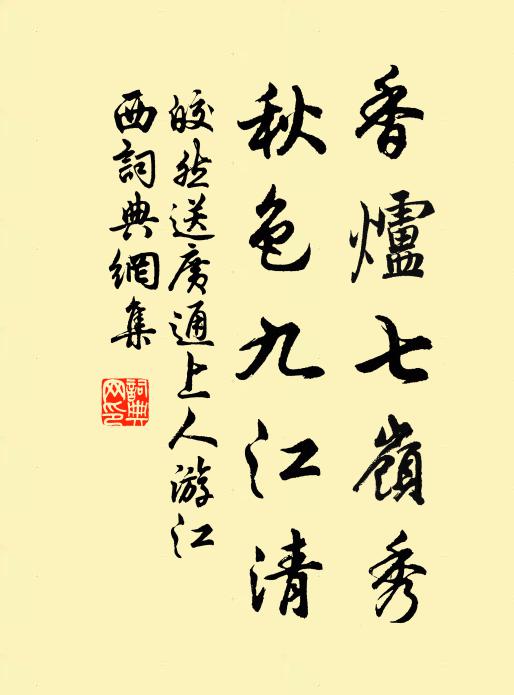 香爐七嶺秀
秋色九江清
皎然送廣通上人游江
西詞典網集
詞典网印